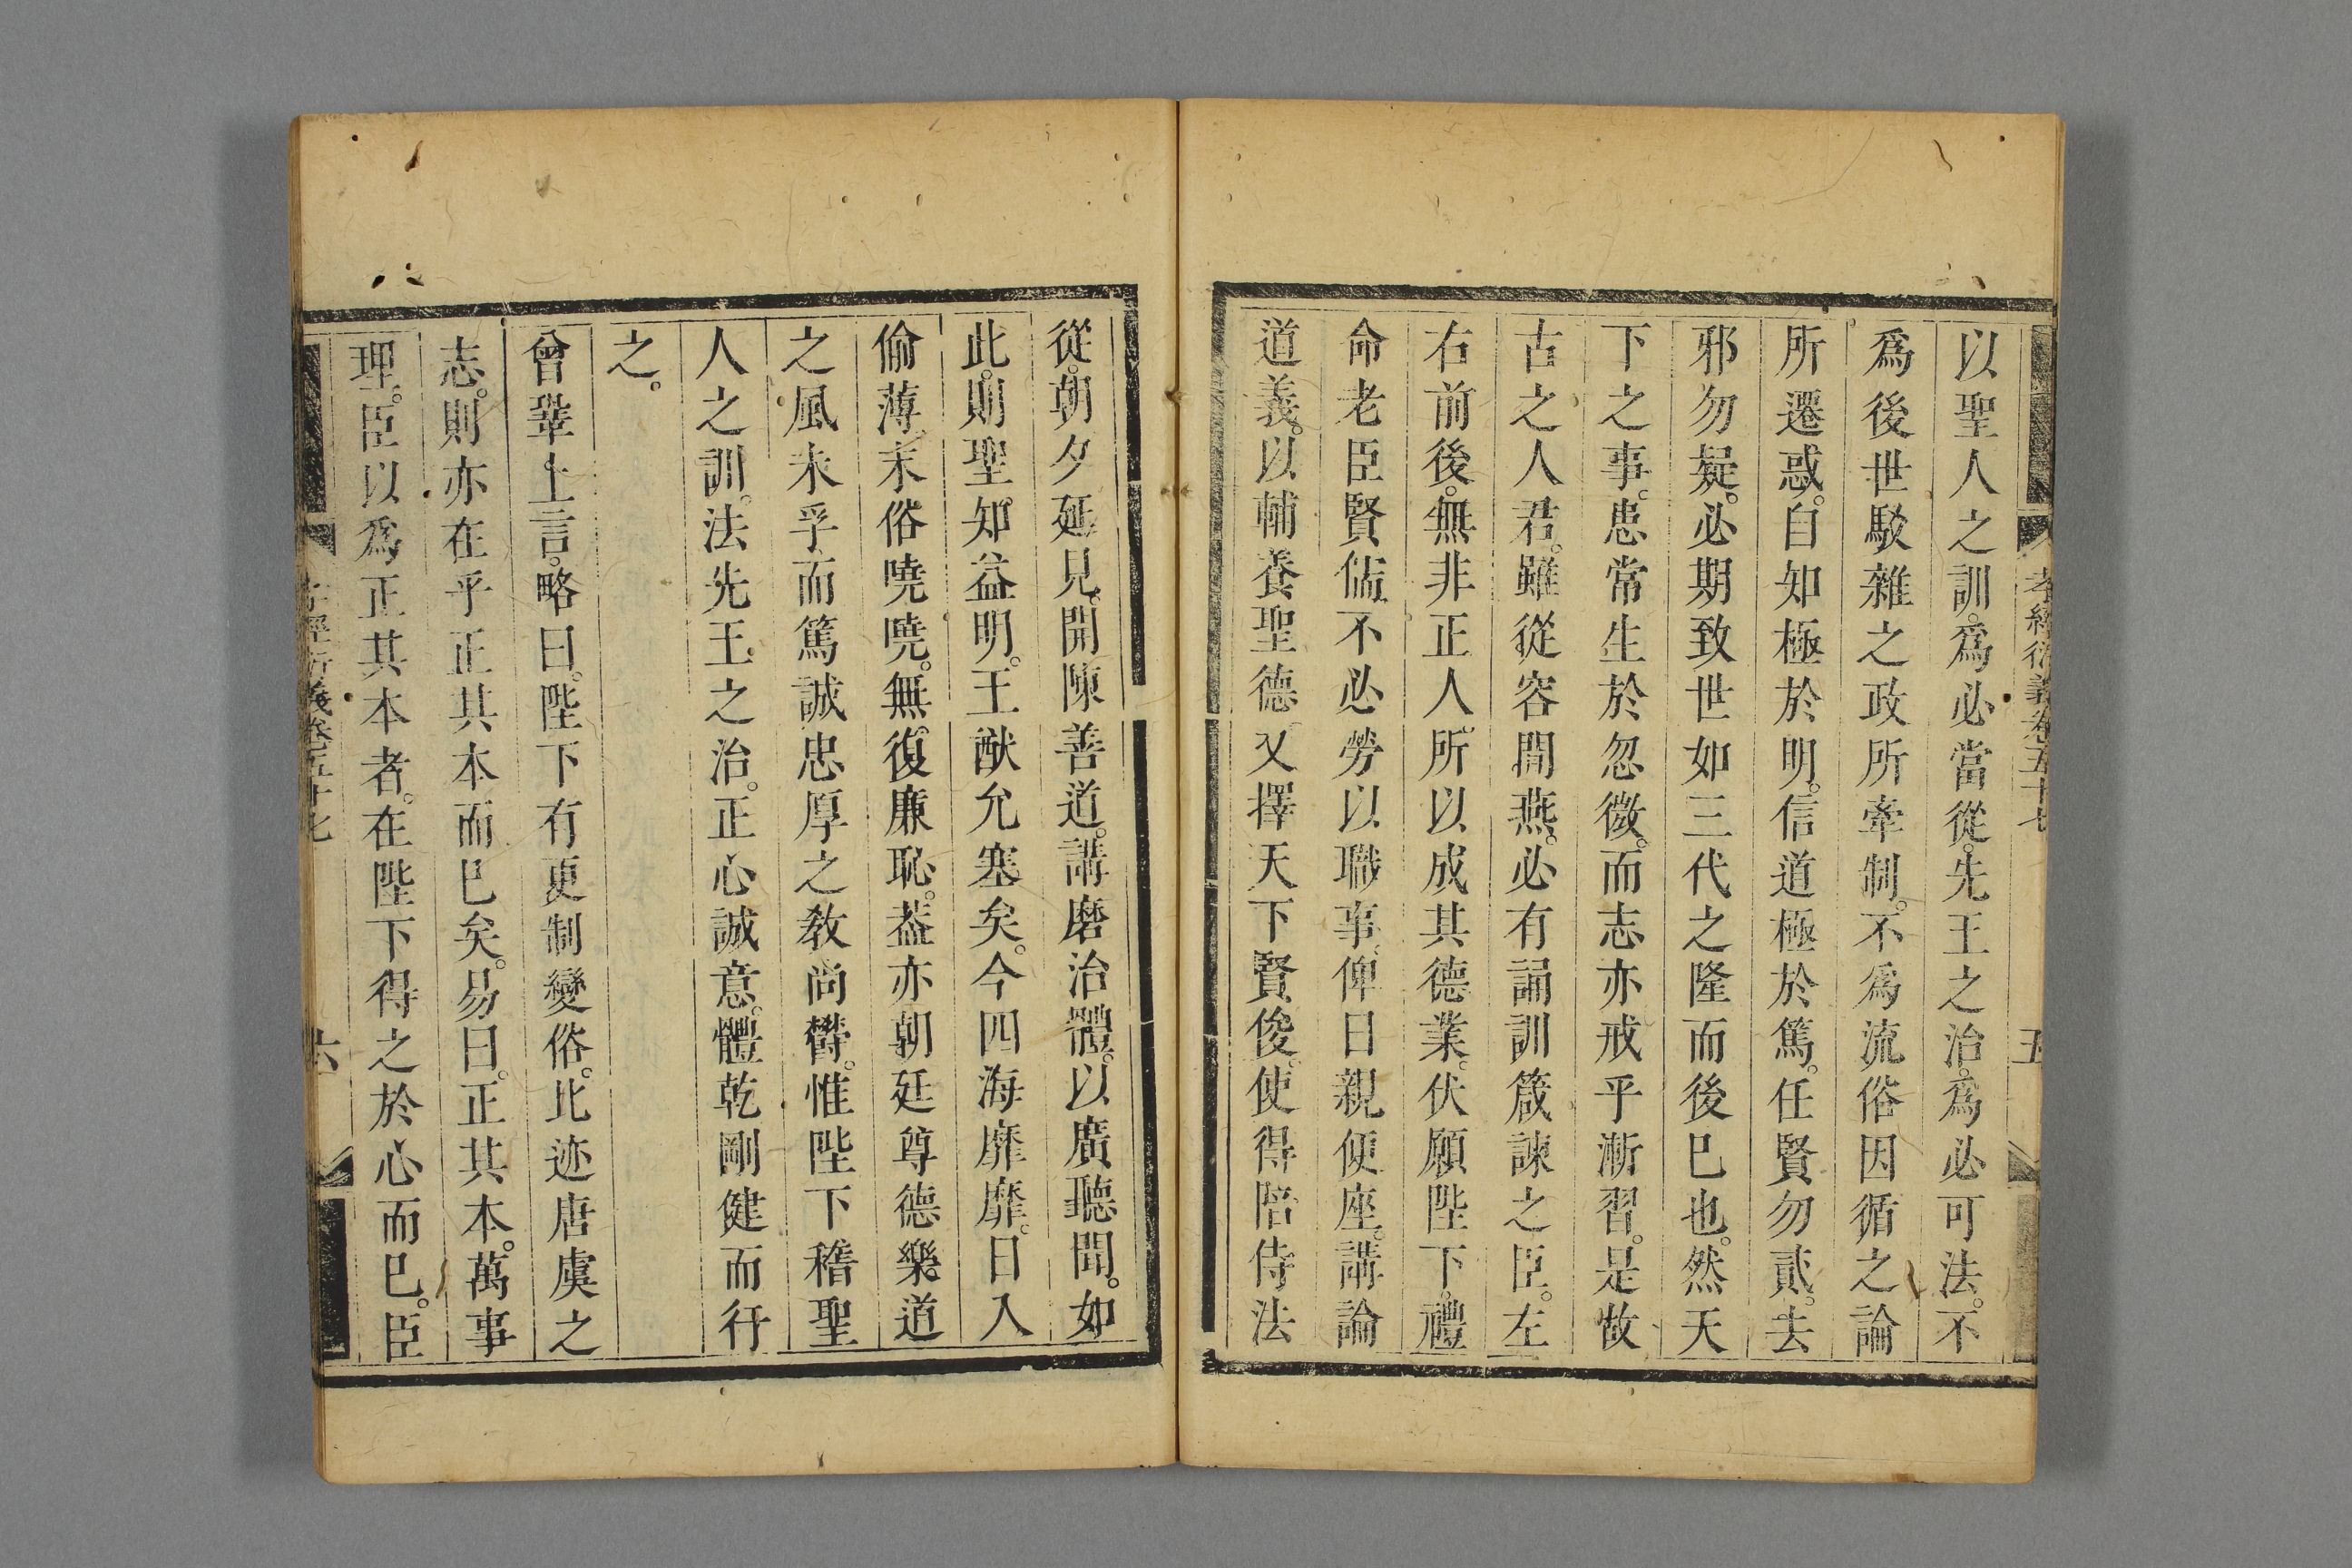 孝經衍義卷五十七
五
以聖人之訓。為必當從。先王之治。為必可法。不
為後世駁雜之政所牽制。不為流俗因循之論
所遷惑。自知極於明。信道極於篤。任賢勿貳。去
邪勿疑。必期致世如三代之隆而後已也。然天
下之事。患常生於忽微。而志亦戒乎漸習。是故
古之人君。雖從容閒燕。必有誦訓箴諫之臣。左
右前後。無非正人。所以成其德業。伏願陛下。禮
命老臣賢儒。不必勞以職事。俾日親便座。講論
道義。以輔養聖德。又擇天下賢俊。使得陪侍法
從。朝夕延見。開陳善道。講磨治體。以廣聽聞。如
此。則聖知益明。王猷允塞矣。今四海靡靡。日入
偷薄。末俗嘵嘵。無復廉恥。葢亦朝廷尊德樂道
之風未孚。而篤誠忠厚之教尚鬱。惟陛下稽聖
人之訓。法先王之治。正心誠意。體乾剛健而行
之。
曾鞏上言。略曰。陛下有更制變俗。比迹唐虞之
志。則亦在乎正其本而已矣。易曰。正其本。萬事
理。臣以為正其本者。在陛下得之於心而已。臣
孝經衍義卷五十七
六